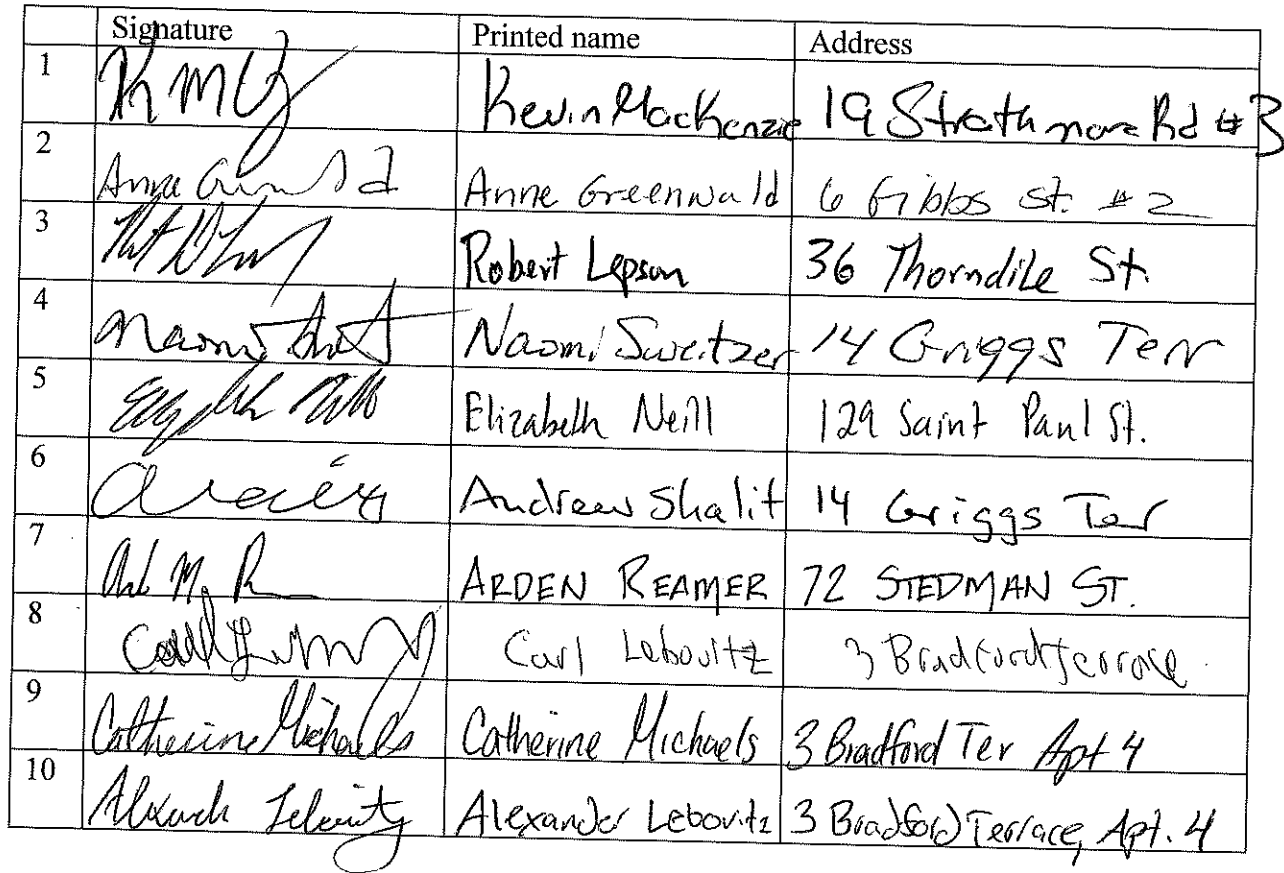 Signature Printed name Address
1 Kevin MacKenzie 19 Strathmore Rd #3
2 Anne Greenwald 6 Gibbs St. #2
3 Robert Lepson 36 Thorndile St.
4 Naomi Naomi Sweitzer 14 Griggs Terr
5 Elizabeth Neill 129 Saint Paul St.
6 Andrew Shalit 14 Griggs Ter
7 ARDEN REAMER 72 STEDMAN ST.
8 Carl Lebovitz 3 Bradford Terrace
9 Catherine Michaels Catherine Michaels 3 Bradford Ter Apt 4
10 Alexander Lebovitz 3 Bradford Terrace, Apt. 4